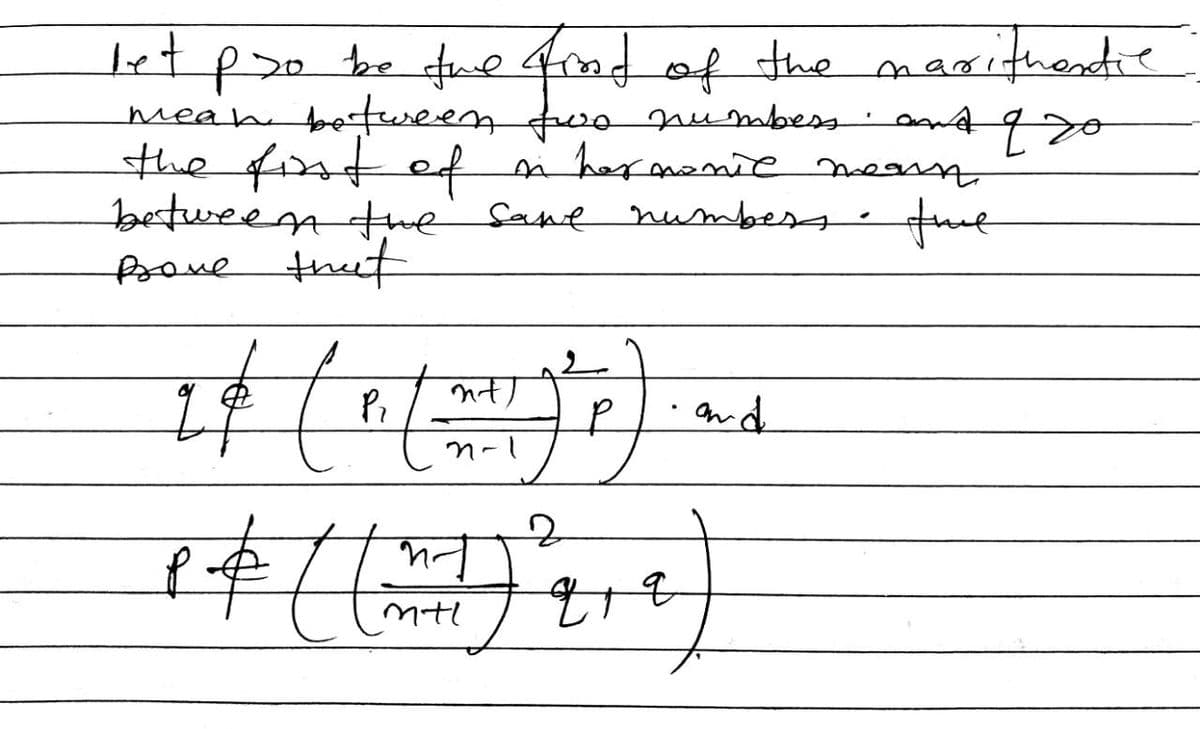 let p>0 be the first of the n arithmetic
mean between two numbers. and q>0
the first of n harmonic mean
between the same numbers. the
Prove that
q ∉ (p, ((n+1)/(n-1))² p) . and
p ∉ (((n-1)/(n+1))² q, q).